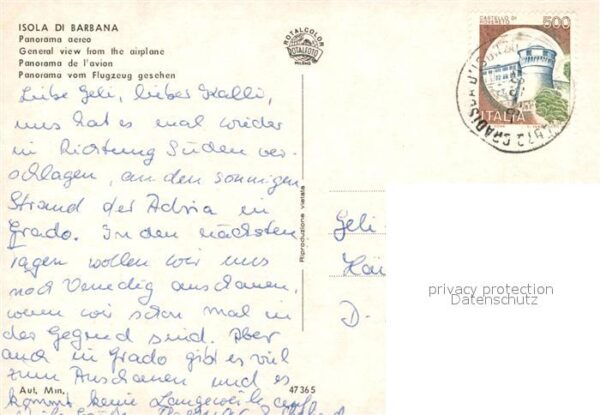 ISOLA DI BARBANA
Panorama aereo
General view from the airplane
Panorama de l'avion
Panorama vom Flugzeug gesehen
Liebe Geli, lieber Kalli,
uns hat es mal wieder
in Richtung Süden ver-
schlagen, an den sonnigen
Strand der Adria in
Grado. In den nächsten
Tagen wollen wir uns
noch Venedig anschauen,
wenn wir schon mal in
der Gegend sind. Aber
auch in Grado gibt es viel
zum Anschauen und es
kommt keine Langeweile auf.
Aut. Min.
47365
ROTALCOLOR
ROTALFOTO
MILANO
Riproduzione vietata
500
ITALIA
Geli
D-
privacy protection
Datenschutz